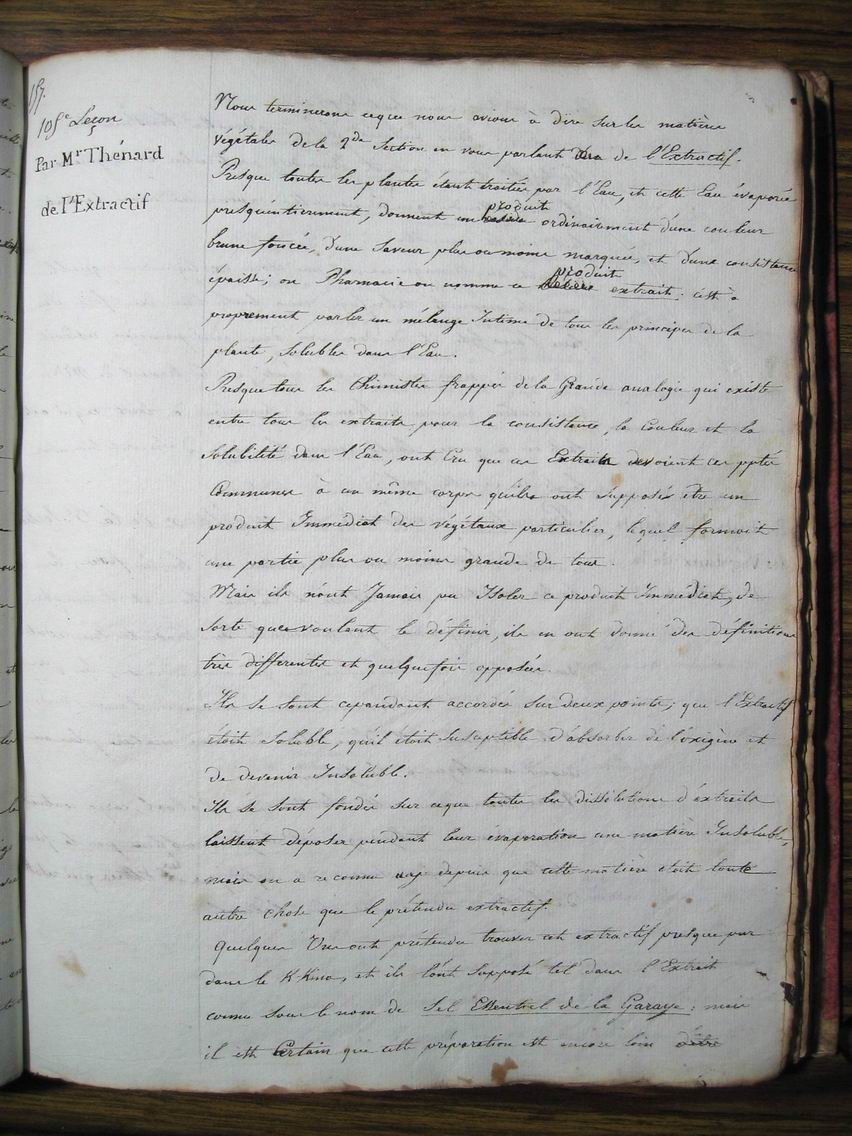 157.
105e Leçon
Par Mr Thénard
de l'Extractif
Nous terminerons ceque nous avions à dire sur les matière
végétales de la 2de Section en vous parlant de l'Extractif.
Presque toutes les plantes étant traitées par l'Eau, et cette Eau évaporée
presqu'entierement, donnent un produit ordinairement d'une couleur
brune foncée, d'une saveur plus ou moins marquée, et d'une consistance
épaisse; en Pharmacie on nomme ce produit extrait: c'est à
proprement parler un mélange Intime de tous les principes de la
plante, solubles dans l'Eau.
Presque tous les Chimistes frappés de la Grande analogie qui existe
entre tous les extraits pour la consistance, la Couleur et la
solubilité dans l'Eau, ont Cru que ces Extraits devoient ces pptés
Communes à un même corps qu'ils ont supposés être un
produit Immédiat des végétaux particulier, lequel formoit
une partie plus ou moins grande de tous.
Mais ils n'ont Jamais pu Isoler ce produit Immédiat, de
sorte que voulant le définir, ils en ont donné des définitions
très differentes et quelquefois opposées.
Ils se sont cependant accordés sur deux points; que l'Extractif
étoit soluble, qu'il étoit susceptible d'absorber de l'oxigène et
de devenir Insoluble.
Ils se sont fondés sur ceque toutes les dissolutions d'extraits
laissent déposer pendant leur évaporation une matière Insoluble,
mais on a reconnu depuis que cette matière etoit toute
autre chose que le prétendu extractif.
Quelques Uns ont prétendu trouver cet extractif presque pur
dans le K-Kina, et ils l'ont supposé tel dans l'Extrait
connu sous le nom de Sel Essentiel de la Garaye: mais
il est Certain que cette préparation est encore loin d'être